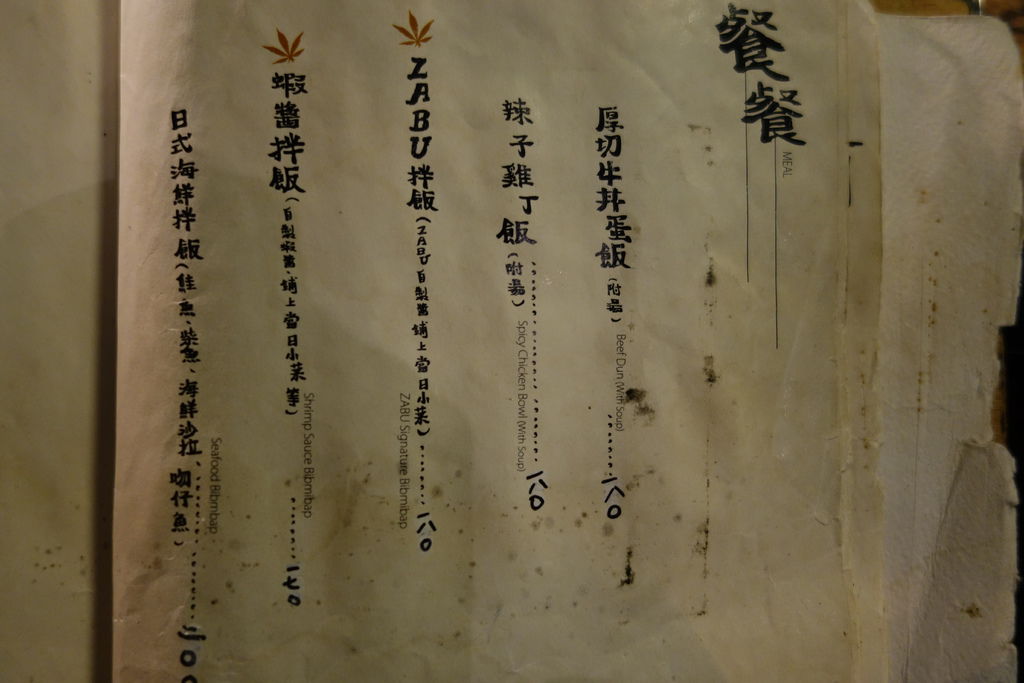 餐餐
MEAL
厚切牛丼蛋飯(附湯)
Beef Dun (With Soup)
一八〇
辣子雞丁飯(附湯)
Spicy Chicken Bowl (With Soup)
一八〇
ZABU拌飯(ZABU自製醬埔上當日小菜)
ZABU Signature Bibmibap
一八〇
蝦醬拌飯(自製蝦醬、埔上當日小菜等)
Shrimp Sauce Bibmibap
一七〇
日式海鮮拌飯(鮭魚、柴魚、海鮮沙拉、吻仔魚)
Seafood Bibmibap
〇〇